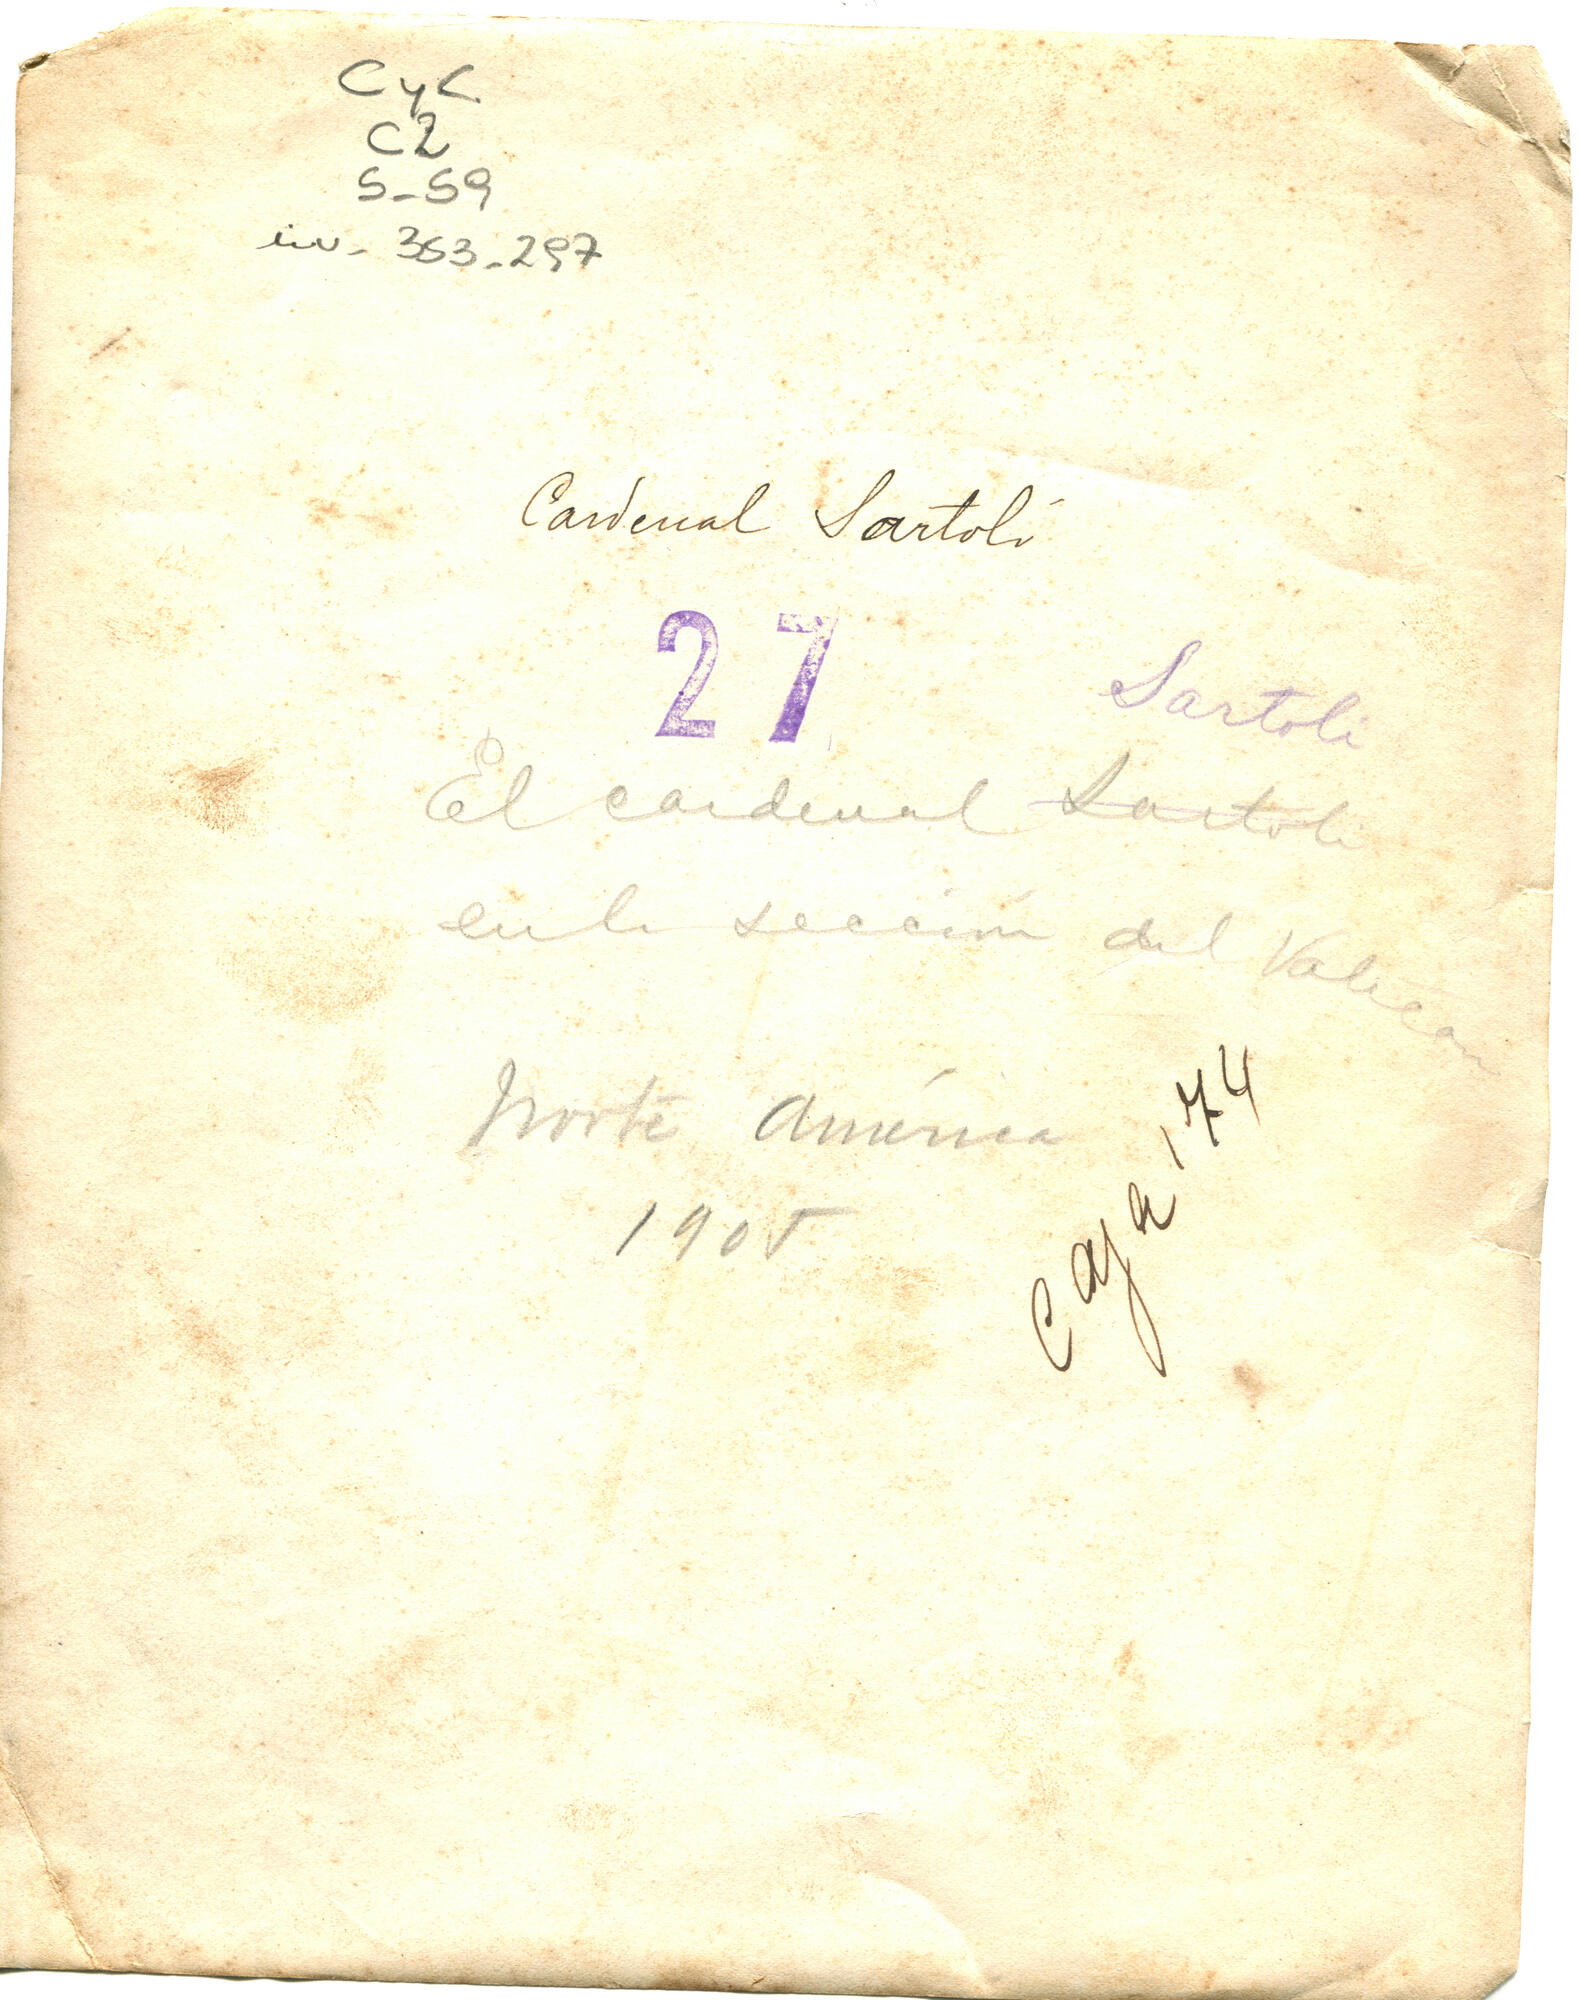 CyC
C2
S-59
inv- 353-297
Cardenal Sartoli
27
Sartoli
El cardenal Sartoli
en la sección del Vatican
Norte América
1905
Caja 174